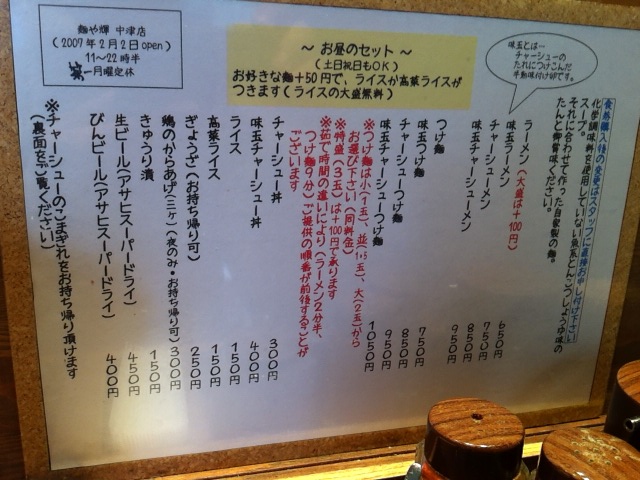 麺や輝 中津店
(2007年2月2日open)
11〜22時半
第一月曜定休
〜 お昼のセット 〜
(土日祝日もOK)
お好きな麺+50円で、ライスか高菜ライスが
つきます(ライスの大盛無料)
味玉とは…
チャーシューの
たれにつけこんだ
半熟味付け卵です。
化学調味料を使用していない魚系とんこつしょうゆ味の
スープ。
それに合わせて作った自家製の麺。
たんと御賞味ください。
ラーメン(大盛は+100円) 650円
味玉ラーメン 750円
チャーシューメン 850円
味玉チャーシューメン 950円
つけ麺 750円
味玉つけ麺 850円
チャーシューつけ麺 950円
味玉チャーシューつけ麺 1050円
※つけ麺は小(1玉)、並(1.5玉)、大(2玉)から
お選び下さい(同料金)
※特盛(3玉)は+100円で承ります
※茹で時間の違いにより(ラーメン2分半、
つけ麺9分)ご提供の順番が前後することが
ございます
チャーシュー丼 300円
味玉チャーシュー丼 400円
ライス 150円
高菜ライス 150円
ぎょうざ(お持ち帰り可) 250円
鶏のからあげ(三ヶ)(夜のみ・お持ち帰り可) 300円
きゅうり漬 150円
生ビール(アサヒスーパードライ) 450円
びんビール(アサヒスーパードライ) 400円
※チャーシューのこまぎれをお持ち帰り頂けます
(裏面をご覧ください)